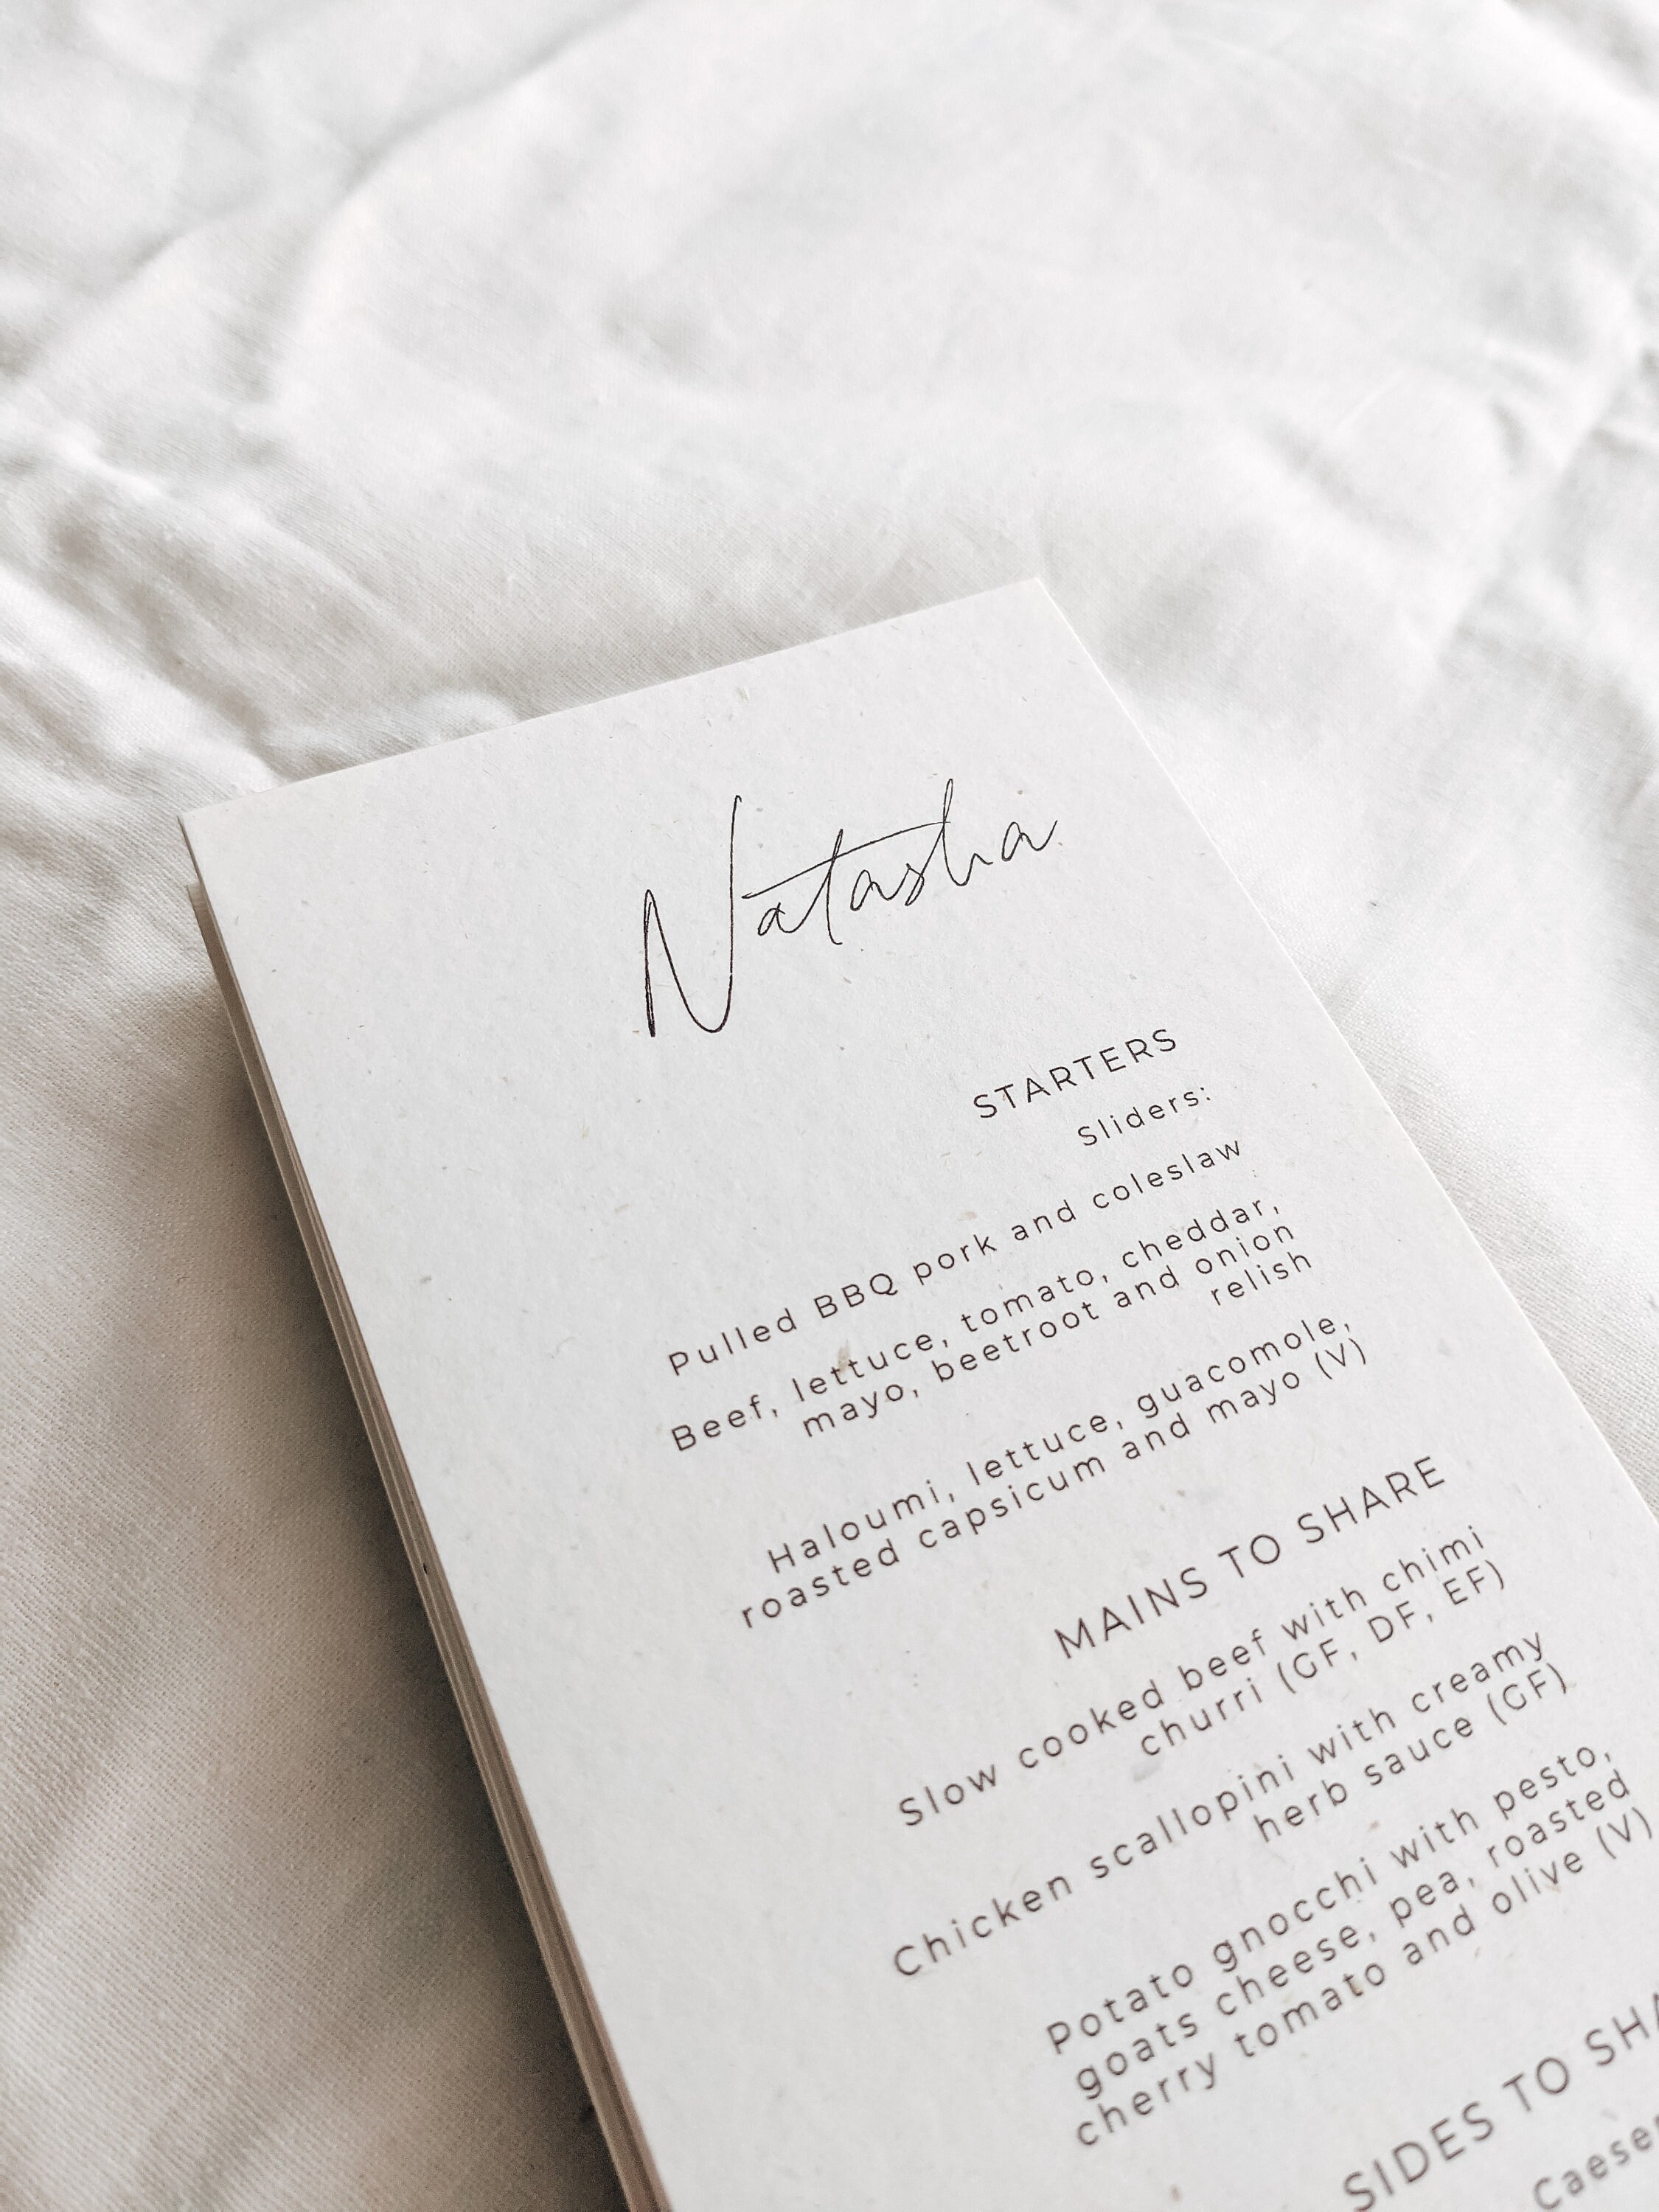 Natasha
STARTERS
Sliders:
Pulled BBQ pork and coleslaw
Beef, lettuce, tomato, cheddar,
mayo, beetroot and onion
relish
Haloumi, lettuce, guacomole,
roasted capsicum and mayo (V)
MAINS TO SHARE
Slow cooked beef with chimi
churri (GF, DF, EF)
Chicken scallopini with creamy
herb sauce (GF)
Potato gnocchi with pesto,
goats cheese, pea, roasted
cherry tomato and olive (V)
SIDES TO